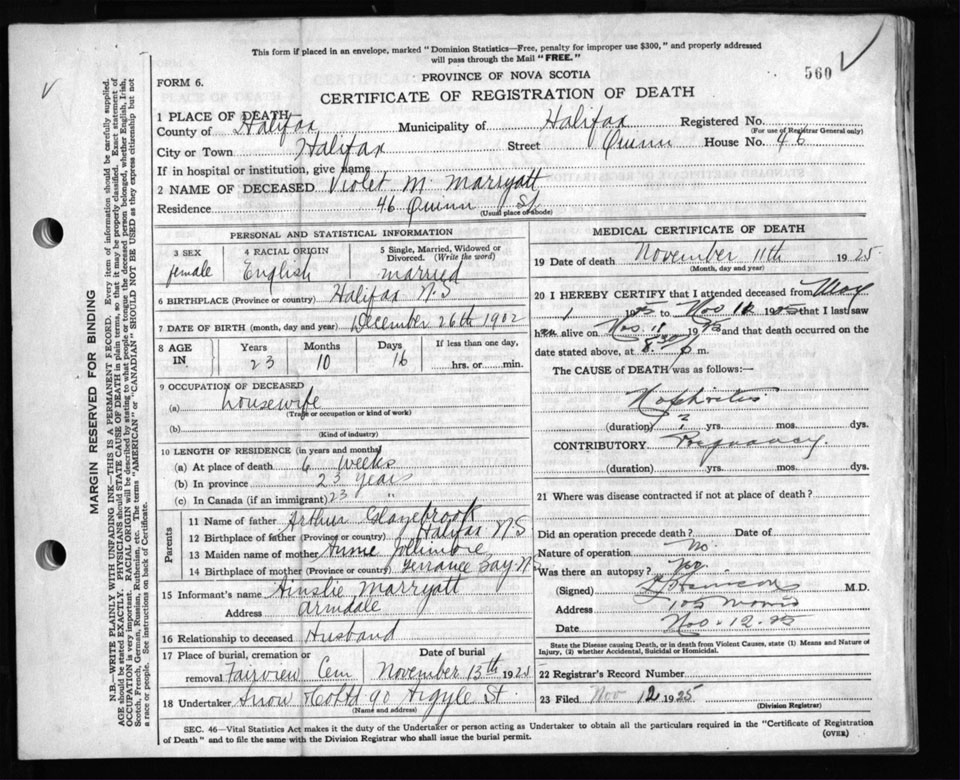 This form if placed in an envelope, marked "Dominion Statistics—Free, penalty for improper use $300," and properly addressed
will pass through the Mail "FREE."
560
FORM 6.
PROVINCE OF NOVA SCOTIA
CERTIFICATE OF REGISTRATION OF DEATH
1 PLACE OF DEATH
County of Halifax Municipality of Halifax Registered No.
(For use of Registrar General only)
City or Town Halifax Street Quinn House No. 46
If in hospital or institution, give name
2 NAME OF DECEASED Violet M Marryatt
Residence 46 Quinn St
(Usual place of abode)
PERSONAL AND STATISTICAL INFORMATION
3 SEX 4 RACIAL ORIGIN 5 Single, Married, Widowed or Divorced. (Write the word)
female English married
6 BIRTHPLACE (Province or country) Halifax N.S
7 DATE OF BIRTH (month, day and year) December 26th 1902
8 AGE IN Years Months Days If less than one day,
23 10 16 hrs. or min.
9 OCCUPATION OF DECEASED
(a) housewife
(Trade or occupation or kind of work)
(b)
(Kind of industry)
10 LENGTH OF RESIDENCE (in years and months)
(a) At place of death 6 weeks
(b) In province 23 years
(c) In Canada (if an immigrant) 23 "
Parents
11 Name of father Arthur Glazebrook
12 Birthplace of father (Province or country) Halifax N S
13 Maiden name of mother Annie Jollimore
14 Birthplace of mother (Province or country) Terrance Bay N S
15 Informant's name Ainslie Marryatt
Address Armdale
16 Relationship to deceased Husband
17 Place of burial, cremation or removal Date of burial
Fairview Cem November 13th 1925
18 Undertaker Snow & Co Ltd 90 Argyle St.
(Name and address)
MEDICAL CERTIFICATE OF DEATH
19 Date of death November 11th 1925
(Month, day and year)
20 I HEREBY CERTIFY that I attended deceased from May
1 1925 to Nov 12 1925 that I last saw
her alive on Nov. 11 1925 and that death occurred on
date stated above, at 8.30 p m.
The CAUSE of DEATH was as follows:—
Nephritis
(duration) ? yrs. mos. dys.
CONTRIBUTORY Pregnancy
(duration) yrs. mos. dys.
21 Where was disease contracted if not at place of death?
Did an operation precede death? Date of
Nature of operation No.
Was there an autopsy? No.
(Signed) M.D.
Address 105 Morris
Date Nov. 12. 25
State the Disease causing Death, or in death from Violent Causes, state (1) Means and Nature of
Injury, (2) whether Accidental, Suicidal or Homicidal.
22 Registrar's Record Number
23 Filed Nov 12 1925
(Division Registrar)
SEC. 46—Vital Statistics Act makes it the duty of the Undertaker or person acting as Undertaker to obtain all the particulars required in the "Certificate of Registration
of Death" and to file the same with the Division Registrar who shall issue the burial permit.
(OVER)
MARGIN RESERVED FOR BINDING
N.B.—WRITE PLAINLY WITH UNFADING INK—THIS IS A PERMANENT RECORD. Every item of information should be carefully supplied.
AGE should be stated EXACTLY. PHYSICIANS should STATE CAUSE OF DEATH in plain terms, so that it may be properly classified. Exact statement of
OCCUPATION is very important. RACIAL ORIGIN will be described by stating to what people or tongue the deceased person belonged, whether English, Irish,
Scotch, French, German, Russian, Ruthenian, etc. The terms "AMERICAN" or "CANADIAN" SHOULD NOT BE USED as they express citizenship but not
a race or people. See instructions on back of Certificate.